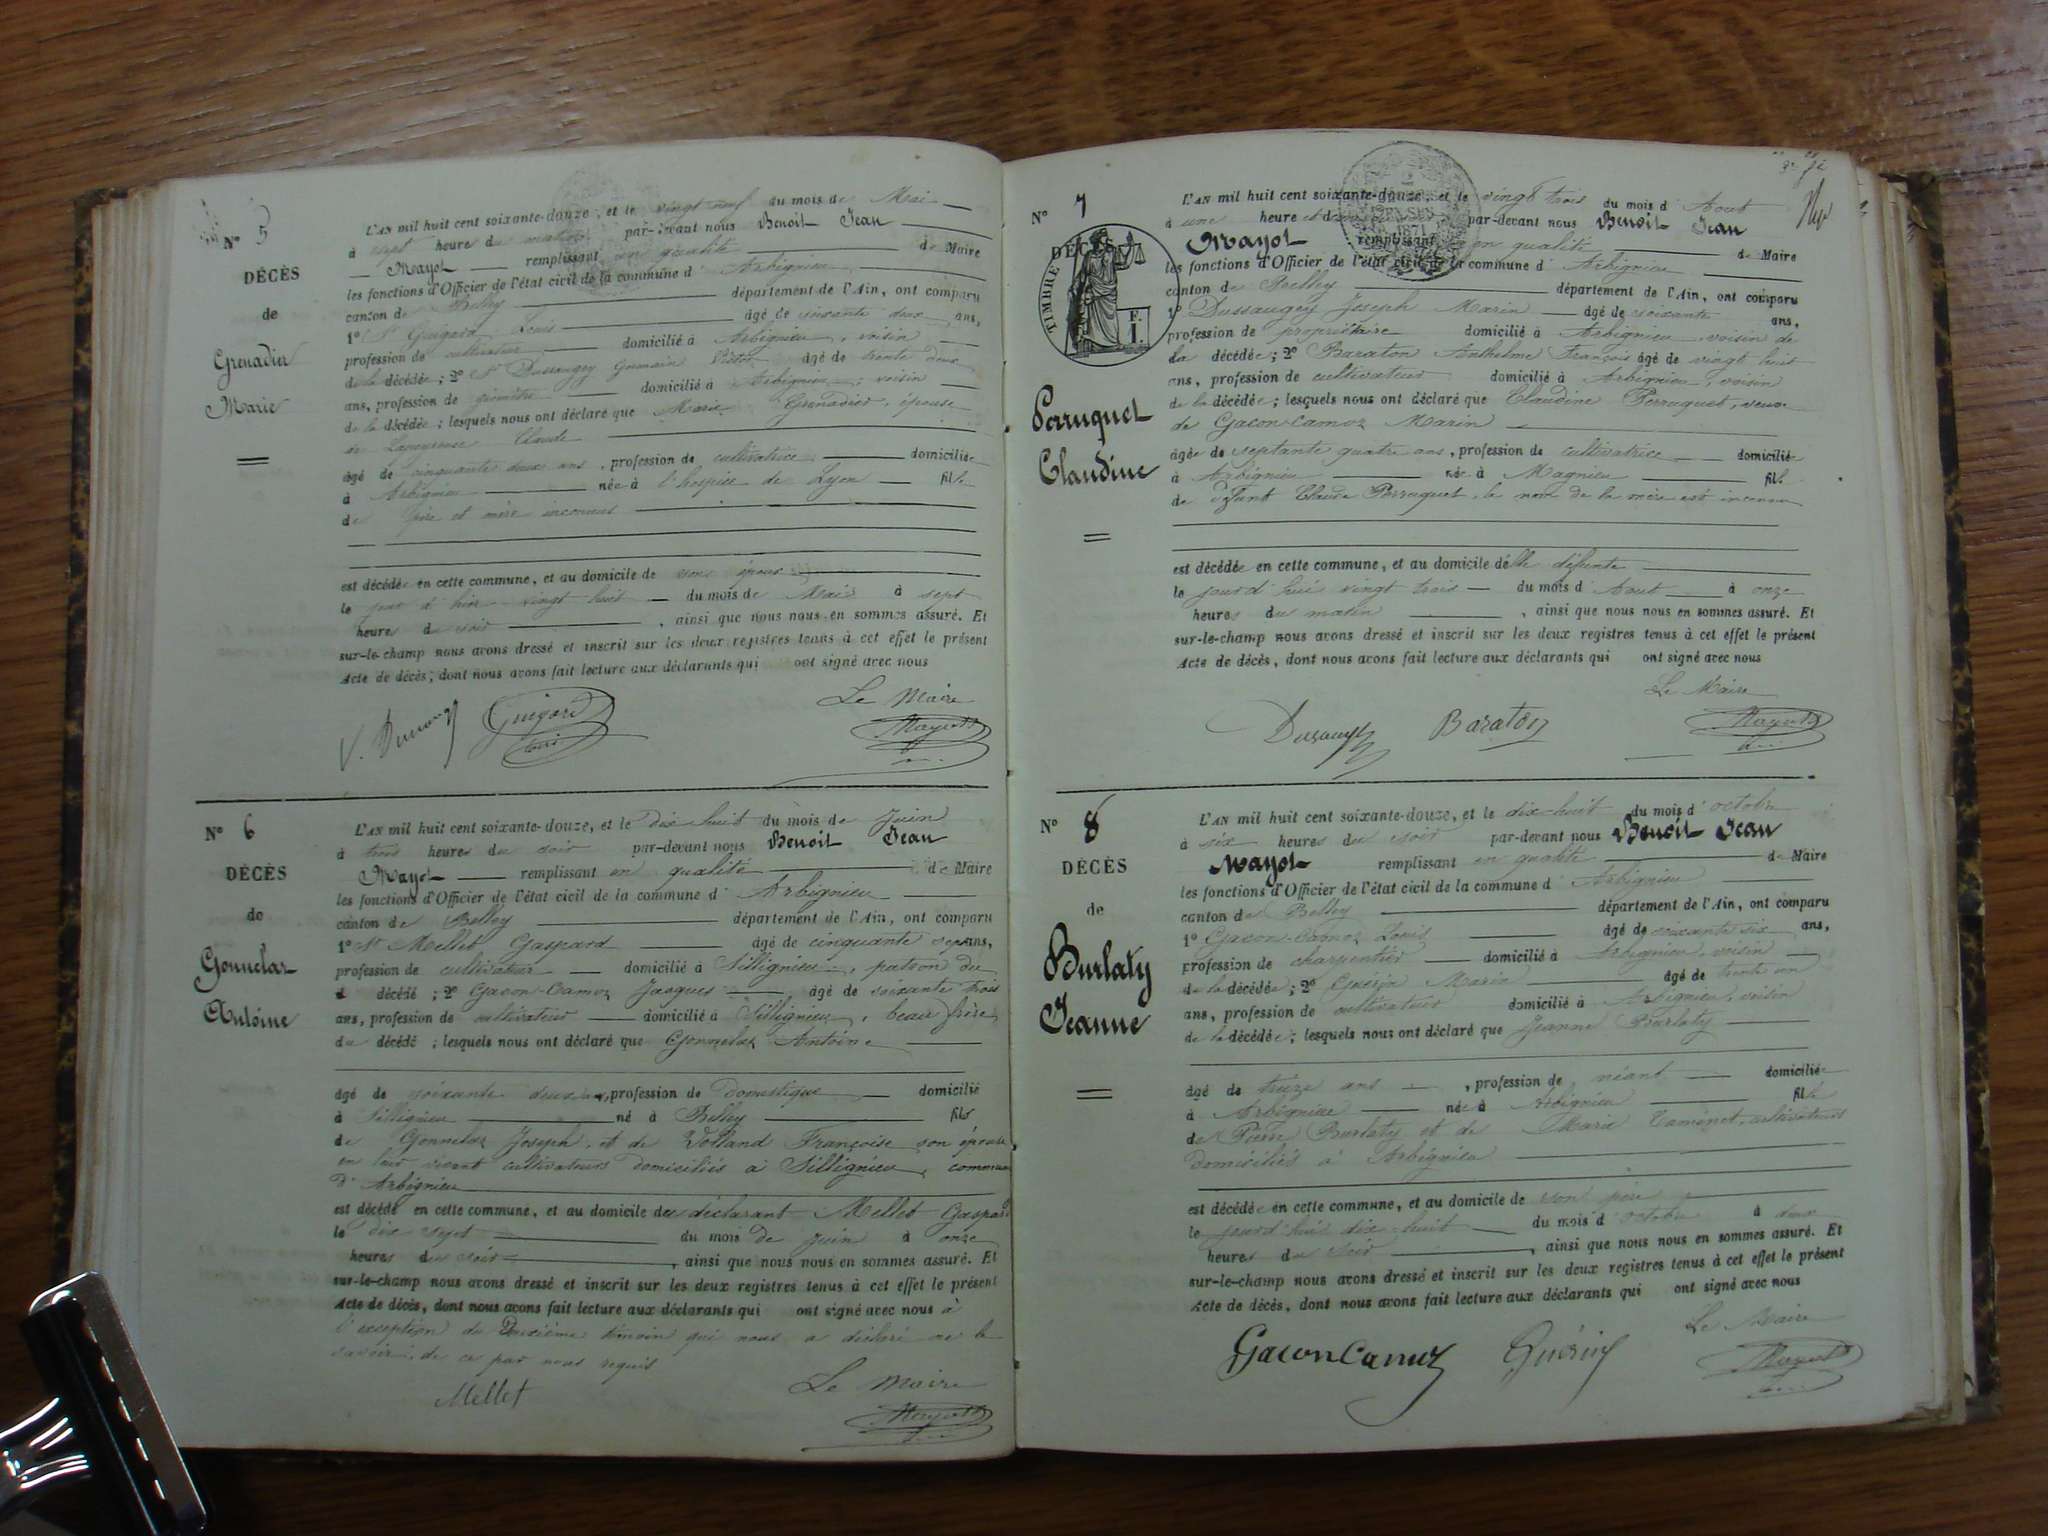 N° 5
DÉCÈS
de
Grenadier
Marie
L'AN mil huit cent soixante-douze, et le vingt neuf du mois de Mai
à sept heure du matin par-devant nous Benoit Jean
Mayot remplissant en qualité de Maire
les fonctions d'Officier de l'état civil de la commune d'Arbignieu
canton de Belley département de l'Ain, ont comparu
1° Sr Guigard Louis âgé de soixante deux ans,
profession de cultivateur domicilié à Arbignieu, voisin
de la décédée; 2° Sr Dussaugey Germain Victor âgé de trente deux
ans, profession de géomètre domicilié à Arbignieu, voisin
de la décédée; lesquels nous ont déclaré que Marie Grenadier, épouse
de Claude
âgée de cinquante deux ans, profession de cultivatrice domiciliée
à Arbignieu née à l'hospice de Lyon fille
de père et mère inconnus
est décédée en cette commune, et au domicile de son époux
le jour d'hier vingt huit du mois de Mai à sept
heures du soir, ainsi que nous nous en sommes assuré. Et
sur-le-champ nous avons dressé et inscrit sur les deux registres tenus à cet effet le présent
Acte de décès, dont nous avons fait lecture aux déclarants qui ont signé avec nous
Le Maire
Guigard
Mayot
N° 6
DÉCÈS
de
Gonnelaz
Antoine
L'AN mil huit cent soixante-douze, et le dix huit du mois de Juin
à trois heures du soir par-devant nous Benoit Jean
Mayot remplissant en qualité de Maire
les fonctions d'Officier de l'état civil de la commune d'Arbignieu
canton de Belley département de l'Ain, ont comparu
1° Sr Mellet Gaspard âgé de cinquante sept ans,
profession de cultivateur domicilié à Sillignieu, patron du
décédé; 2° Gacon-Camoz Jacques âgé de soixante trois
ans, profession de cultivateur domicilié à Sillignieu, beau frère
du décédé; lesquels nous ont déclaré que Gonnelaz Antoine
âgé de soixante deux ans, profession de domestique domicilié
à Sillignieu né à Belley fils
de Gonnelaz Joseph, et de Volland Françoise son épouse
en leur vivant cultivateurs domiciliés à Sillignieu, commune
d'Arbignieu
est décédé en cette commune, et au domicile du déclarant Mellet Gaspard
le dix sept du mois de Juin à onze
heures du soir, ainsi que nous nous en sommes assuré. Et
sur-le-champ nous avons dressé et inscrit sur les deux registres tenus à cet effet le présent
Acte de décès, dont nous avons fait lecture aux déclarants qui ont signé avec nous à
l'exception du deuxième témoin qui nous a déclaré ne le
savoir, de ce par nous requis
Le Maire
Mellet
Mayot
N° 7
DÉCÈS
TIMBRE
F. I.
1871
Perruquet
Claudine
L'AN mil huit cent soixante-douze, et le vingt trois du mois d'Aout
à une heure et par-devant nous Benoit Jean
Mayot remplissant en qualité de Maire
les fonctions d'Officier de l'état civil de la commune d'Arbignieu
canton de Belley département de l'Ain, ont comparu
1° Dussaugey Joseph Marin âgé de soixante ans,
profession de propriétaire domicilié à Arbignieu, voisin de
la décédée; 2° Baraton Anthelme François âgé de vingt huit
ans, profession de cultivateur domicilié à Arbignieu, voisin
de la décédée; lesquels nous ont déclaré que Claudine Perruquet, veuve
de Gacon-Camoz Marin
âgée de septante quatre ans, profession de cultivatrice domiciliée
à Arbignieu née à Magnieu fille
de défunt Claude Perruquet, le nom de la mère est inconnu
est décédée en cette commune, et au domicile d'elle défunte
le jourd'hui vingt trois du mois d'Aout à onze
heures du matin, ainsi que nous nous en sommes assuré. Et
sur-le-champ nous avons dressé et inscrit sur les deux registres tenus à cet effet le présent
Acte de décès, dont nous avons fait lecture aux déclarants qui ont signé avec nous
Le Maire
Baraton
Mayot
N° 8
DÉCÈS
de
Burlaty
Jeanne
L'AN mil huit cent soixante-douze, et le dix-huit du mois d'octobre
à six heures du soir par-devant nous Benoit Jean
Mayot remplissant en qualité de Maire
les fonctions d'Officier de l'état civil de la commune d'Arbignieu
canton de Belley département de l'Ain, ont comparu
1° Gacon-Camoz Louis âgé de soixante six ans,
profession de charpentier domicilié à Arbignieu, voisin
de la décédée; 2° Guérin Marin âgé de trente un
ans, profession de cultivateur domicilié à Arbignieu, voisin
de la décédée; lesquels nous ont déclaré que Jeanne Burlaty
âgé de treize ans, profession de néant domiciliée
à Arbignieu née à Arbignieu fille
de Pierre Burlaty et de Marie cultivateurs
domiciliés à Arbignieu
est décédée en cette commune, et au domicile de son père
le jourd'hui dix-huit du mois d'octobre à deux
heures du soir, ainsi que nous nous en sommes assuré. Et
sur-le-champ nous avons dressé et inscrit sur les deux registres tenus à cet effet le présent
Acte de décès, dont nous avons fait lecture aux déclarants qui ont signé avec nous
Le Maire
Gacon Camoz
Guérin
Mayot